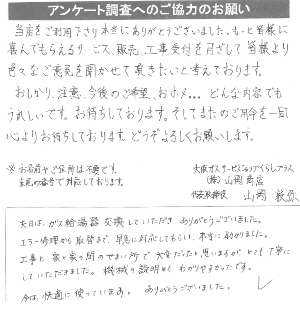 アンケート調査へのご協力のお願い
当店をご利用下さり本当にありがとうございました。もっと皆様に
喜んでもらえるサービス、販売、工事受付を目ざして皆様より
色々なご意見を聞かせて頂きたいと考えております。
おしかり、注意、今後のご希望、おホメ… どんな内容でも
うれしいです。お待ちしております。そしてまたのご用命を一同
心よりお待ちしております。どうぞよろしくお願いします。
※お名前やご住所は不要です。
番号で対応しております。
大阪ガスサービスショップくらしプラス
(株)山岡商店
代表取締役 山岡
本日は、ガス給湯器交換していただき ありがとうございました。
エラー修理から取替まで、早急に対応してもらい、本当に助かりました。
工事も 家と家の間のせまい所で 大変だったと思いますが とても丁寧に
していただきました。機械の説明も わかりやすかったです。
今は、快適に使っています。ありがとうございました。